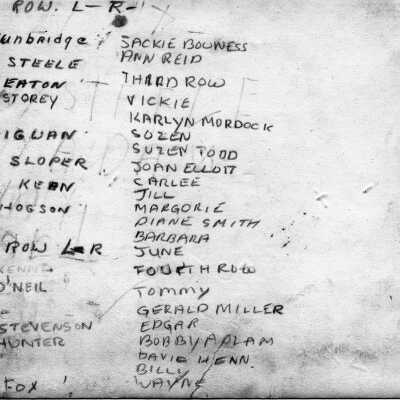 ROW. L-R-
unbridge
STEELE
EATON
STOREY
IGWAN
SLOPER
KEEN
HOGSON
ROW L-R
KENNE
O'NEIL
STEVENSON
HUNTER
FOX
SACKIE BOWNESS
ANN REID
THIRD ROW
VICKIE
KARLYN MORDOCK
SUZEN
SUZEN TODD
JOAN ELLOTT
CARLEE
JILL
MARGORIE
DIANE SMITH
BARBARA
JUNE
FOURTH ROW
TOMMY
GERALD MILLER
EDGAR
BOBBY ADLAM
DAVID HENN
BILLY
WAYNE